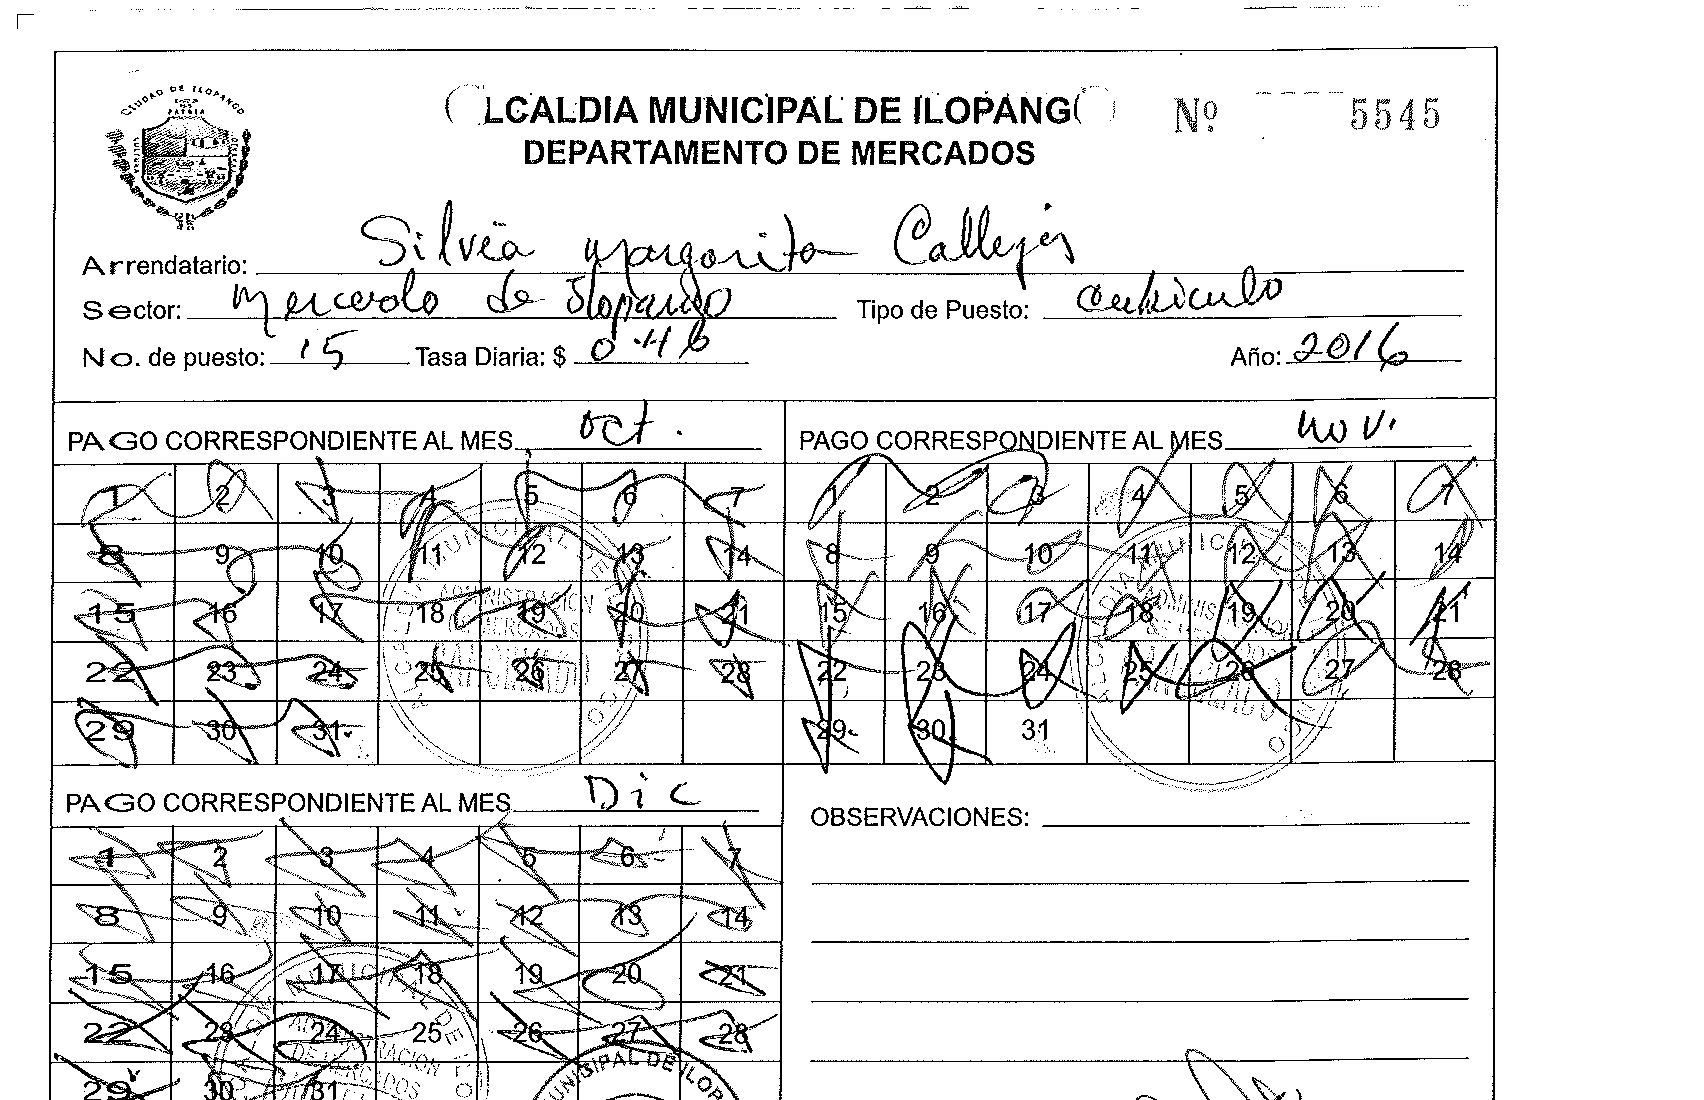 CIUDAD DE ILOPANGO
LCALDIA MUNICIPAL DE ILOPANG
Nº 5545
DEPARTAMENTO DE MERCADOS
Arrendatario: Silvia Margarita Callejas
Sector: Mercado de Ilopango Tipo de Puesto: Cubiculo
No. de puesto: 15 Tasa Diaria: $ 0.46 Año: 2016
PAGO CORRESPONDIENTE AL MES Oct.
1 2 3 4 5 6 7
8 9 10 11 12 13 14
15 16 17 18 19 20 21
22 23 24 25 26 27 28
29 30 31
PAGO CORRESPONDIENTE AL MES Nov.
1 2 3 4 5 6 7
8 9 10 11 12 13 14
15 16 17 18 19 20 21
22 23 24 25 26 27 28
29 30 31
PAGO CORRESPONDIENTE AL MES Dic
1 2 3 4 5 6 7
8 9 10 11 12 13 14
15 16 17 18 19 20 21
22 23 24 25 26 27 28
29 30 31
MUNICIPAL DE ILOP
OBSERVACIONES: